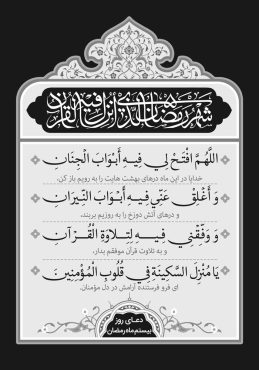 شَهْرُ رَمَضَانَ الَّذِي أُنْزِلَ فِيهِ الْقُرْآنُ
اللَّهُمَّ افْتَحْ لِي فِيهِ أَبْوَابَ الْجِنَانِ
خدایا در این ماه درهای بهشت هایت را به رویم باز کن،
وَ أَغْلِقْ عَنِّي فِيهِ أَبْوَابَ النِّيرَانِ
و درهای آتش دوزخ را به روزیم ببند،
وَ وَفِّقْنِي فِيهِ لِتِلَاوَةِ الْقُرْآنِ
و به تلاوت قرآن موفقم بدار،
يَا مُنْزِلَ السَّكِينَةِ فِي قُلُوبِ الْمُؤْمِنِينَ
ای فرو فرستنده آرامش در دل مؤمنان.
دعـای روز
بیستم ماه رمضان